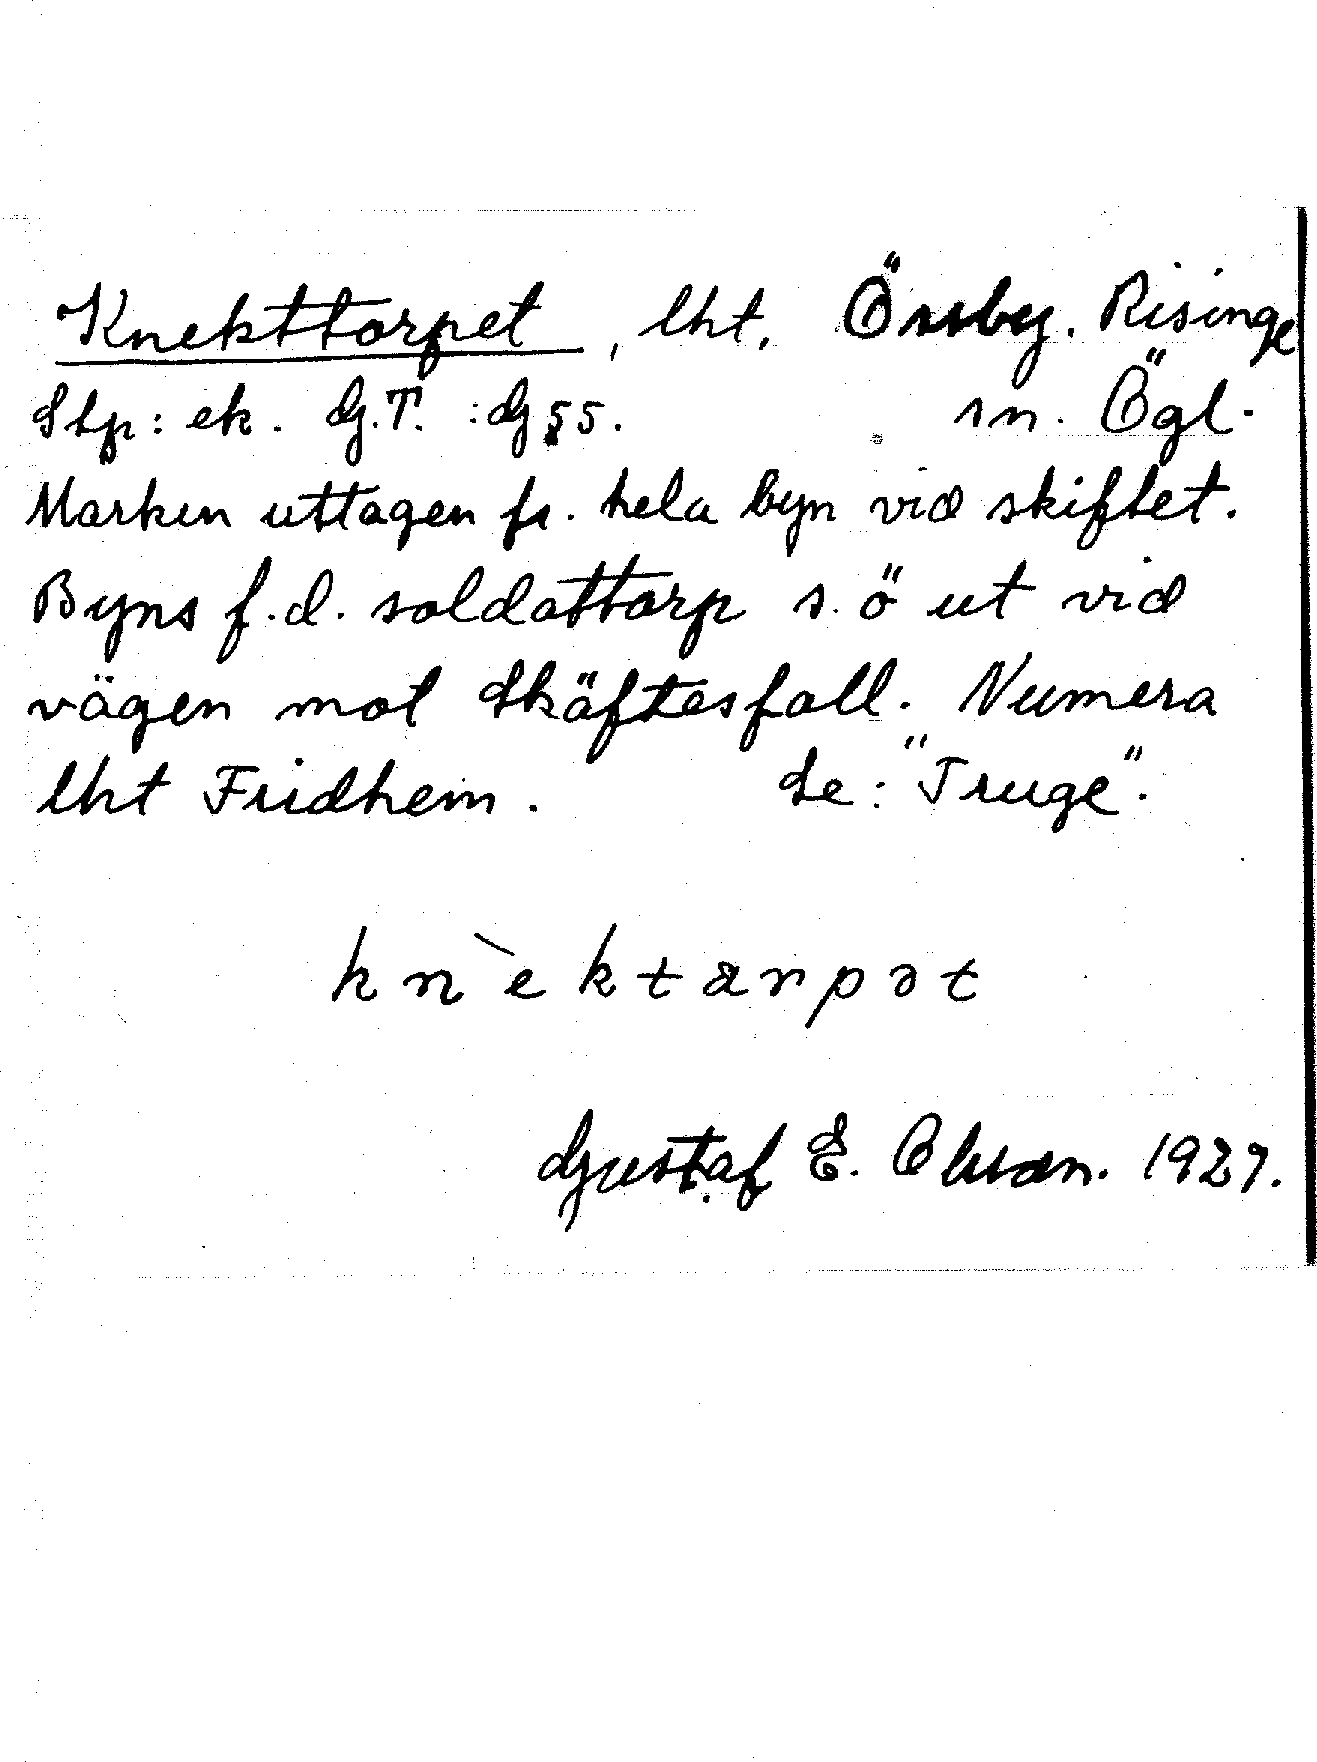 Knekttorpet, lht, Örsby. Risinge
Stp: ek. G.T. : G 55. sn. Ögl.
Marken uttagen fr. hela byn vid skiftet.
Byns f.d. soldattorp s.ö ut vid
vägen mot Skäftesfall. Numera
lht Fridhem. Se: "Truge".
knèktarpət
Gustaf E. Olsson. 1927.